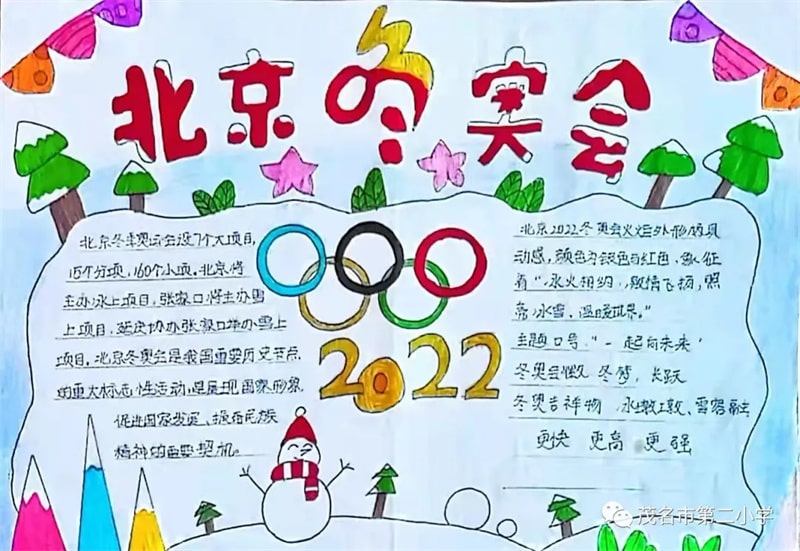 北京冬奥会
北京冬季奥运会设7个大项目,
15个分项,160个小项。北京将
主办冰上项目,张家口将主办雪
上项目,延庆协办张家口举办雪上
项目,北京冬奥会是我国重要历史节点
的重大标志性活动,是展现国家形象
促进国家发展、振奋民族
精神的重要契机。
2022
北京2022冬奥会火炬外形极具
动感,颜色为银色与红色,象征
着"冰火相约,激情飞扬,照
亮冰雪,温暖世界。"
主题口号"一起向未来"
冬奥会徽 冬梦,跃
冬奥吉祥物,冰墩墩、雪容融
更快 更高 更强
茂名市第二小学